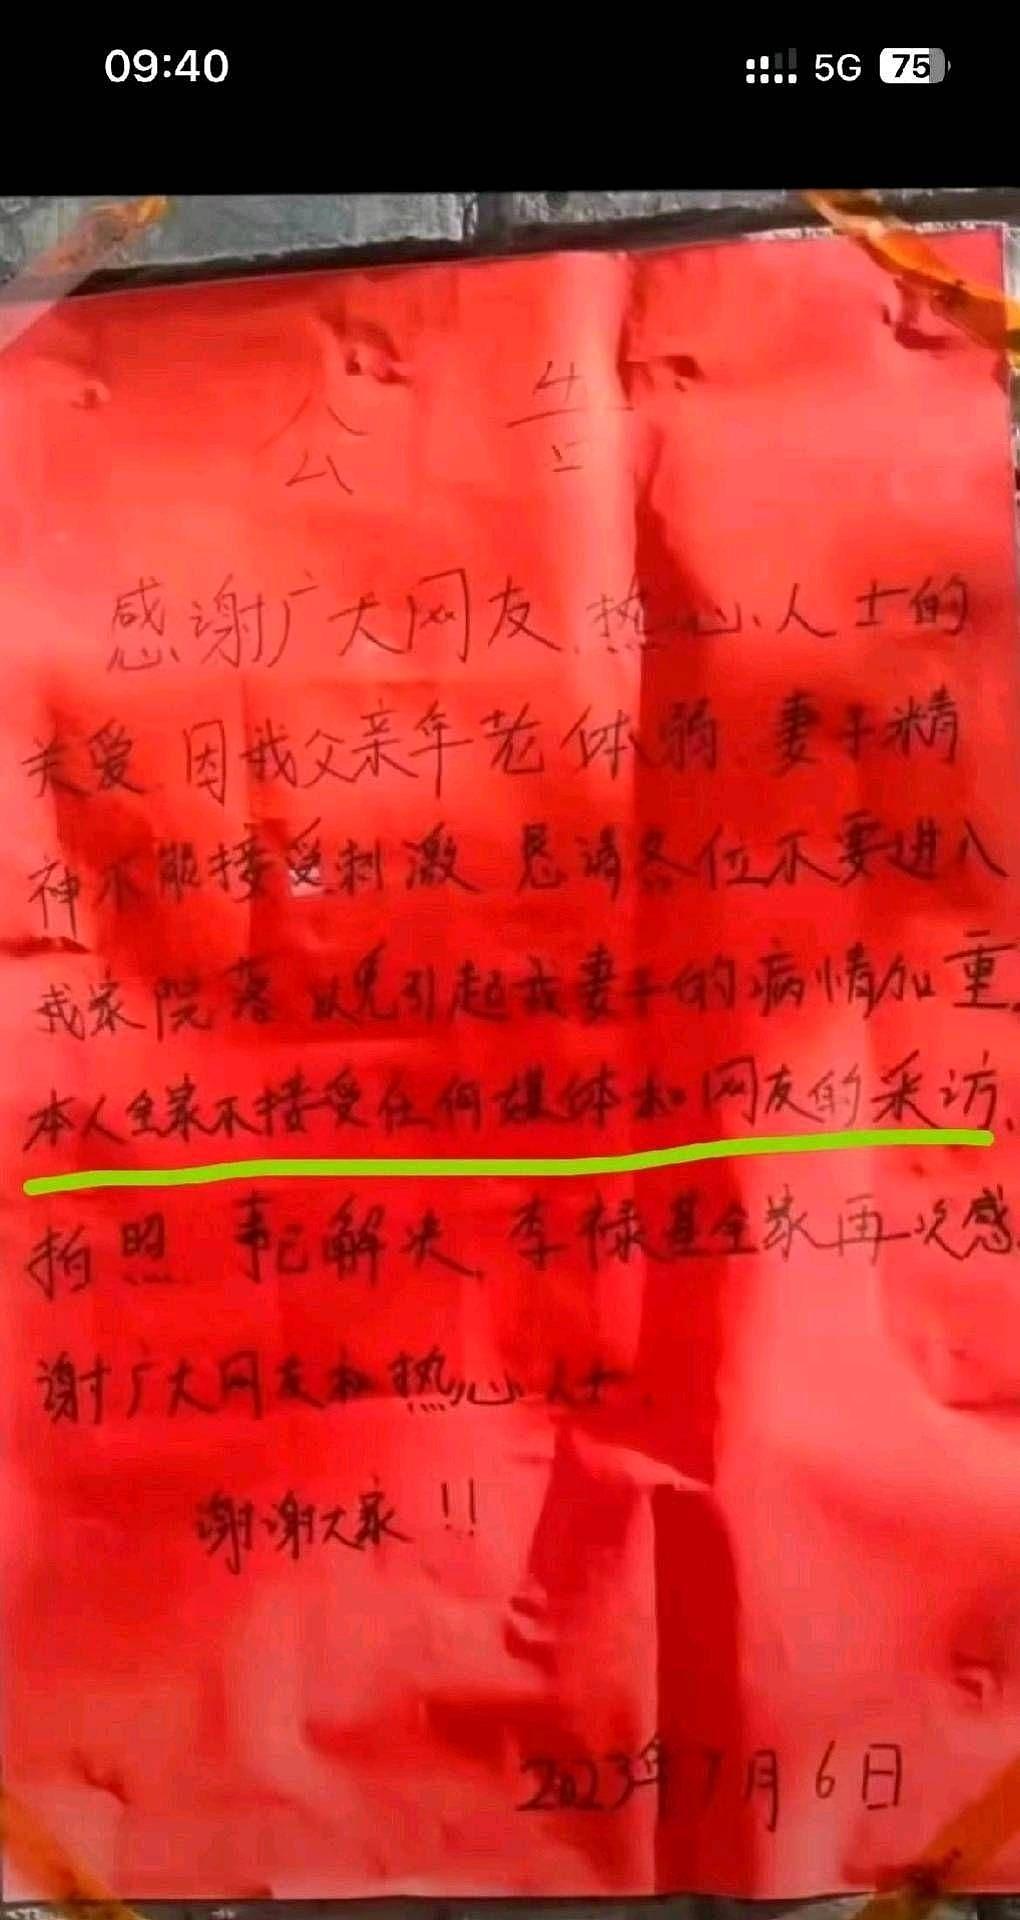 09:40
5G 75
公告
感谢广大网友、热心人士的
关爱.因我父亲年老体弱.妻子精
神不能接受刺激 恳请各位不要进入
我家院落 以免引起我妻子的病情加重.
本人全家不接受任何媒体和网友的采访、
拍照 事已解决.李禄基全家再次感
谢广大网友和热心人士.
谢谢大家!!
2023年7月6日